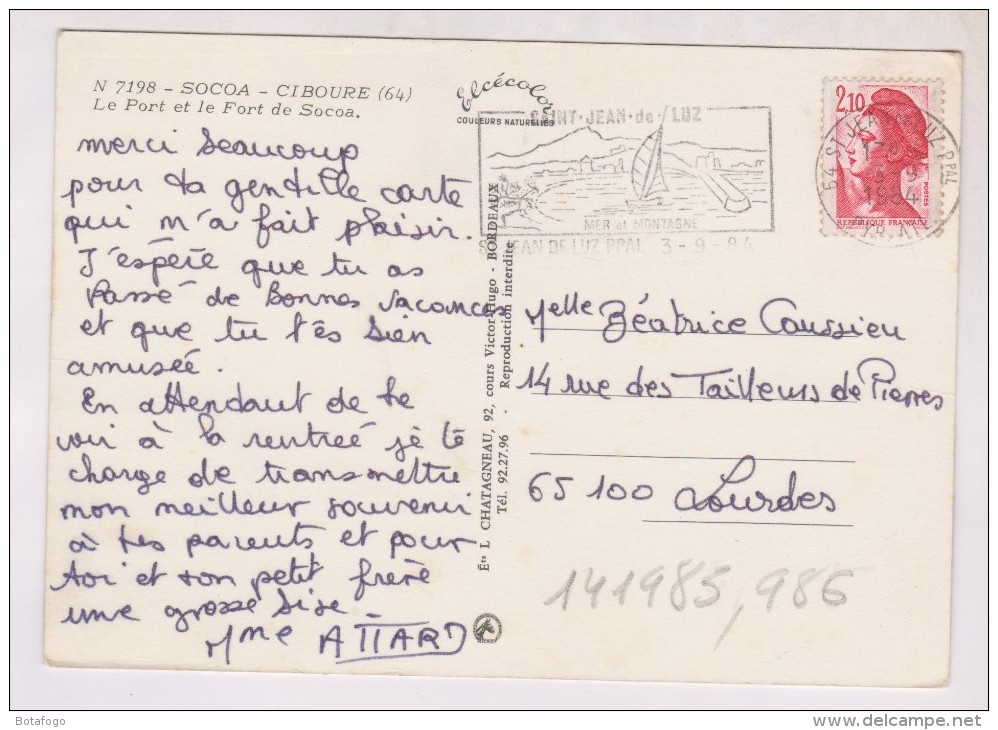 N 7198 - SOCOA - CIBOURE (64)
Le Port et le Fort de Socoa.
merci beaucoup
pour ta gentille carte
qui m'a fait plaisir.
J'espère que tu as
passé de Bonnes vacances
et que tu t'es bien
amusée.
En attendant de te
voir à la rentreé je te
charge de transmettre
mon meilleur souvenir
à tes parents et pour
toi et ton petit frère
une grosse bise -
Mme ATTARD
Elcécolor
COULEURS NATURELLES
Éts L CHATAGNEAU, 92, cours Victor-Hugo - BORDEAUX
Tél. 92.27.96 - Reproduction interdite
SAINT·JEAN·de·LUZ
MER et MONTAGNE
ST JEAN DE LUZ PPAL 3-9-84
2,10
POSTES
REPUBLIQUE FRANÇAISE
64 ST JEAN DE LUZ PPAL
1984
Melle Béatrice Caussieu
14 rue des Tailleurs de Pierres
65100 Lourdes
141985,986
Botafogo
delcampe.net